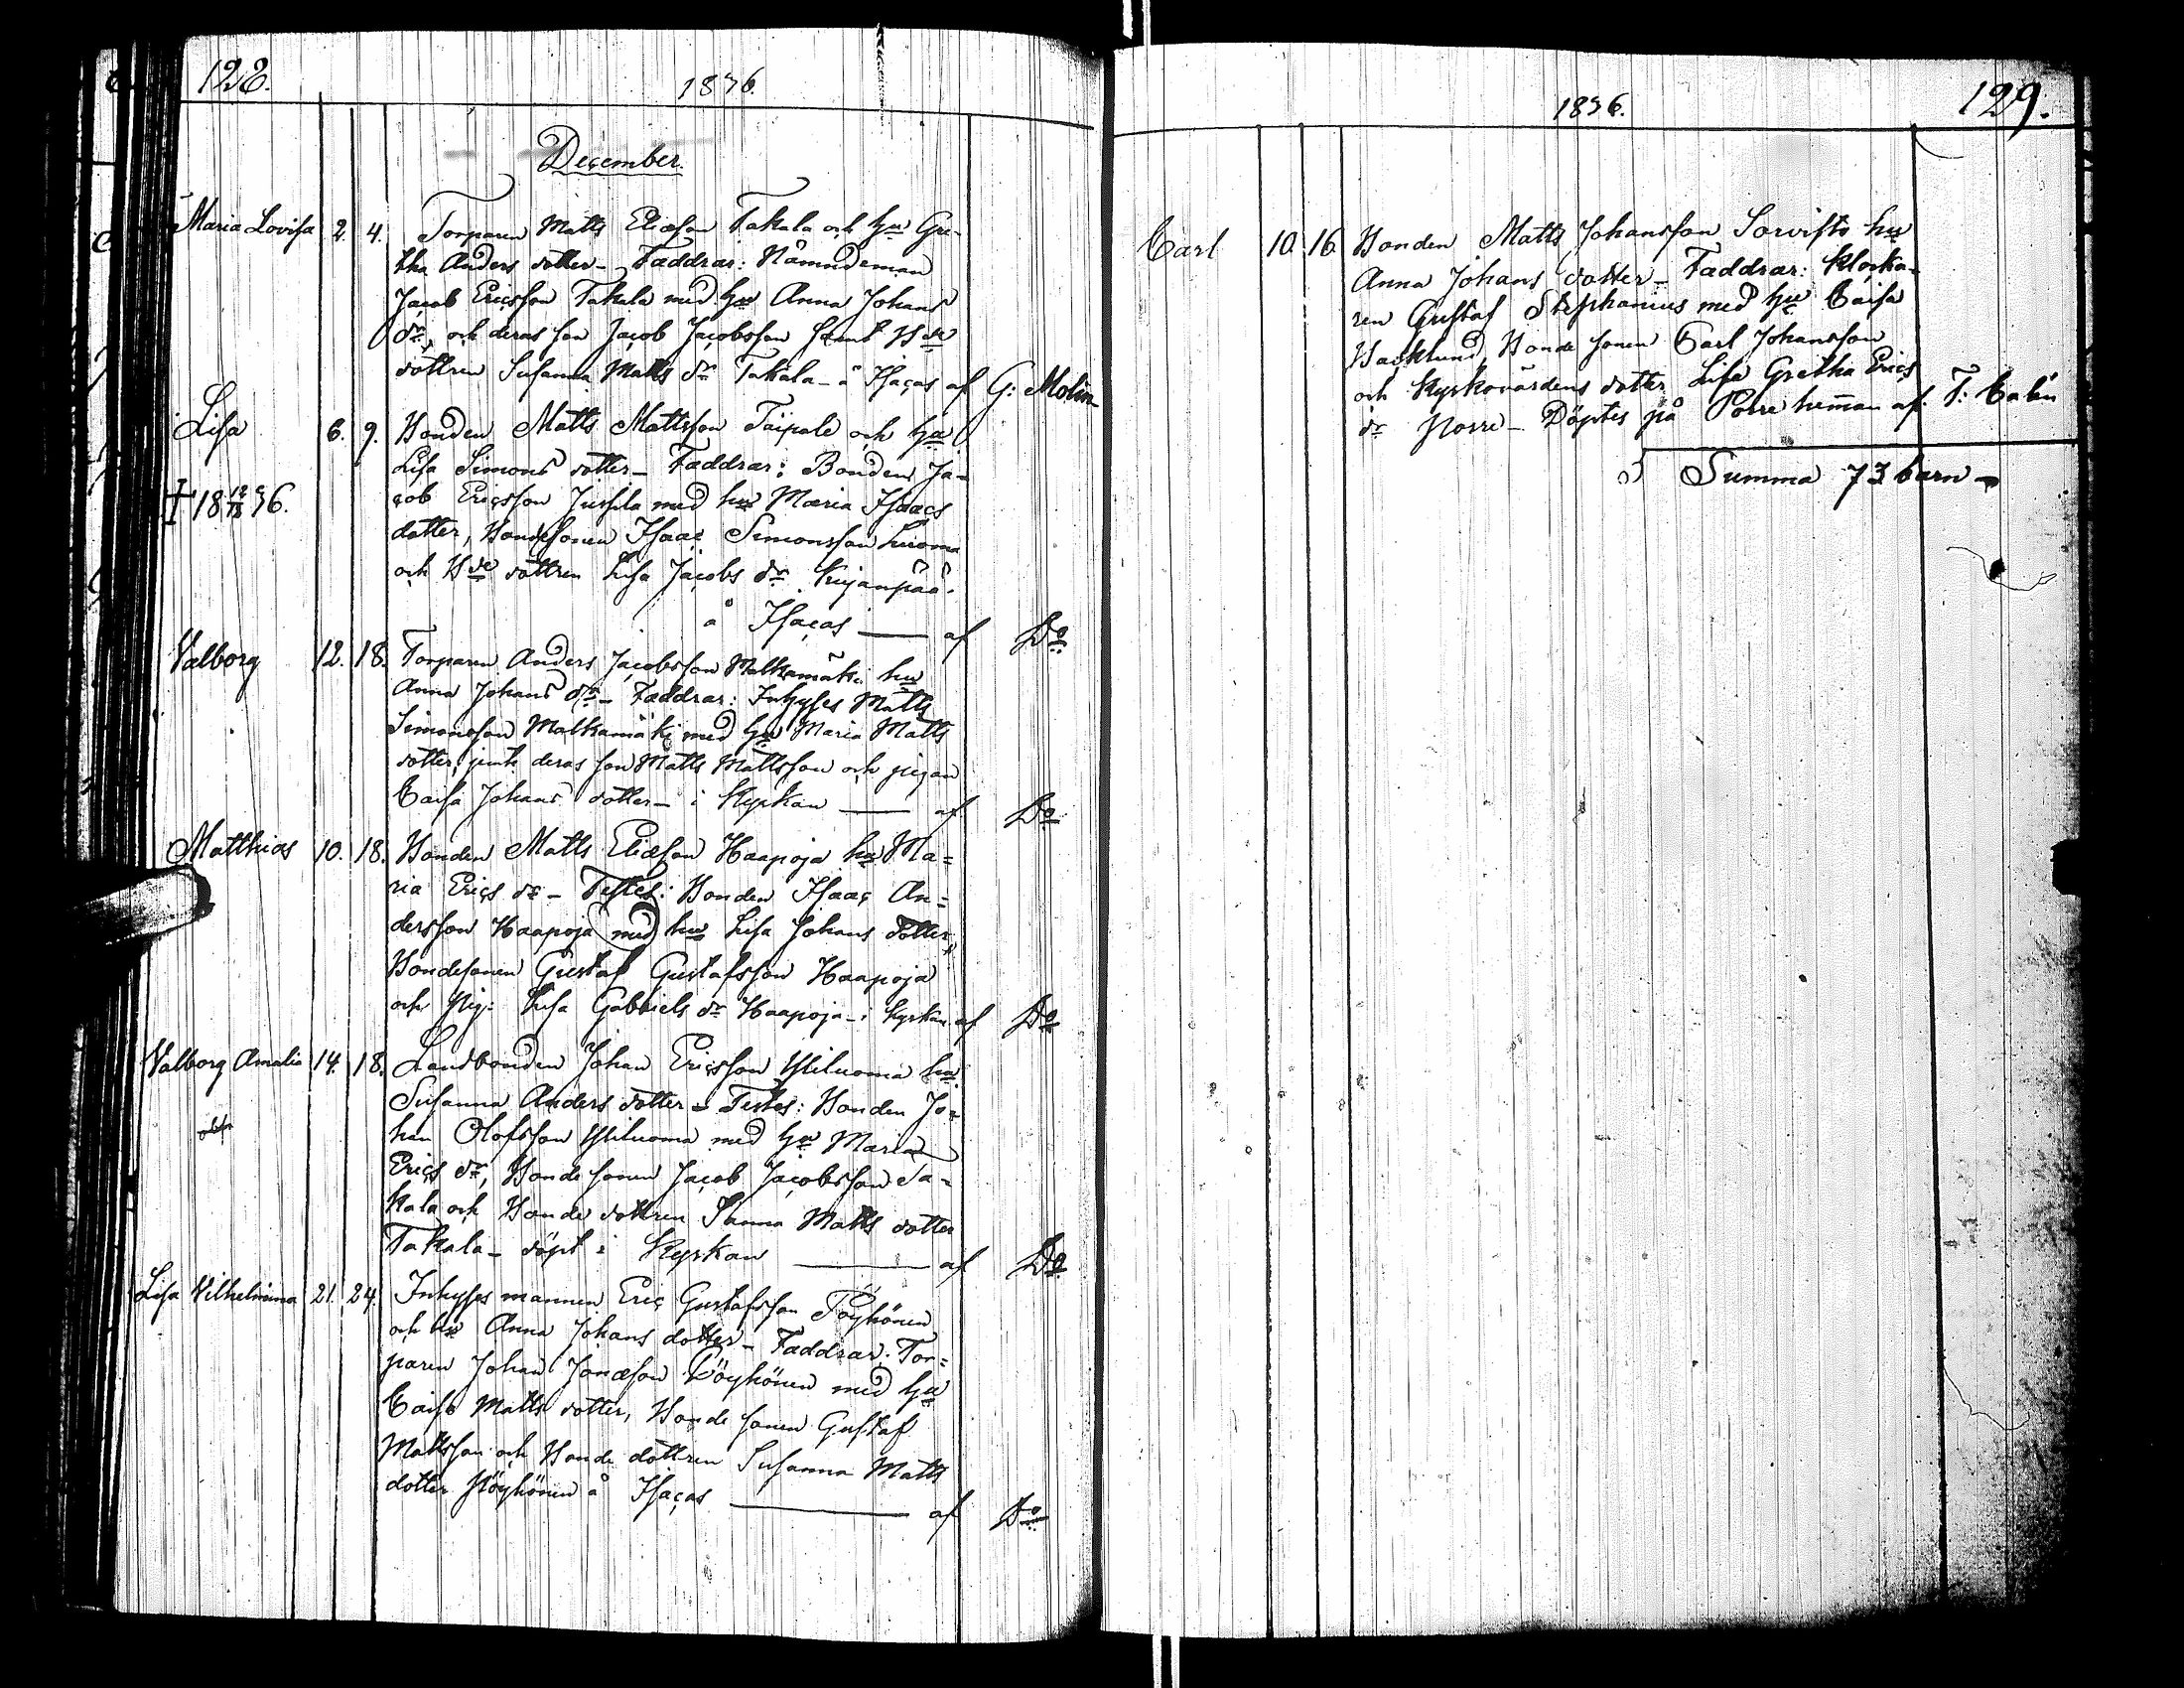 128.
1836.
December.
Maria Lovisa 2. 4. Torparen Matts Eliæson Takala och hu Gre-
tha Anders dotter - Faddrar: Nämndeman
Jacob Ericsson Takala med hu Anna Johans
dr, och deras son Jacob Jacobsson samt Bde
dottren Susanna Matts dr Takala - å Isacas af G: Molin
Lisa 6. 9. Bonden Matts Mattsson Taipale och hu
Lisa Simons dotter - Faddrar: Bonden Ja-
cob Ericsson Jussila med hu Maria Isaacs
† 18 36.
dotter, Bondesonen Isaac Simonsson Luoma
och Bde dottren Lisa Jacobs dr Kujanpää.
å Isacas — af Do
Valborg 12. 18. Torparen Anders Jacobsson Malkamäki hu
Anna Johans dr - Faddrar: Inhyses Matts
Simonsson Malkamäki med hu Maria Matts
dotter, jemte deras son Matts Mattsson och pigan
Caisa Johans dotter - i Kyrkan — af Do
Matthias 10. 18. Bonden Matts Eliæson Haapoja hu Ma=
ria Erics dr - Testes: Bonden Isaac An=
dersson Haapoja med hu Lisa Johans dotter,
Bondesonen Gustaf Gustafsson Haapoja
och Pig: Lisa Gabriels dr Haapoja - i Kyrkan af Do
Valborg Amalia 14. 18. Landbonden Johan Ericsson Yliluoma hu
Susanna Anders dotter - Testes: Bonden Jo=
han Olofsson Yliluoma med hu Maria
Erics dr, Bonde sonen Jacob Jacobsson Ta-
kala och Bonde dottren Sanna Matts dotter
Takala - döpt i Kyrkan — af Do
Lisa Vilhelmina 21. 24. Inhyses mannen Eric Gustafsson Pöyhönen
och hu Anna Johans dotter - Faddrar: Tor=
paren Johan Jonæson Pöyhönen med hu
Caisa Matts dotter, Bonde sonen Gustaf
Mattsson och Bonde dottren Susanna Matts
dotter Pöyhönen å Isacas — af Do
1836.
129.
Carl 10. 16. Bonden Matts Johansson Sorvisto hu
Anna Johans dotter - Faddrar: Klocka-
ren Gustaf Stephanius med hu Caisa
Hacklund, Bonde sonen Carl Johansson
och Kyrkovärdens dotter Lisa Gretha Erics
dr Porre - Döptes på Porre heman af F: Calén
Summa 73 barn -